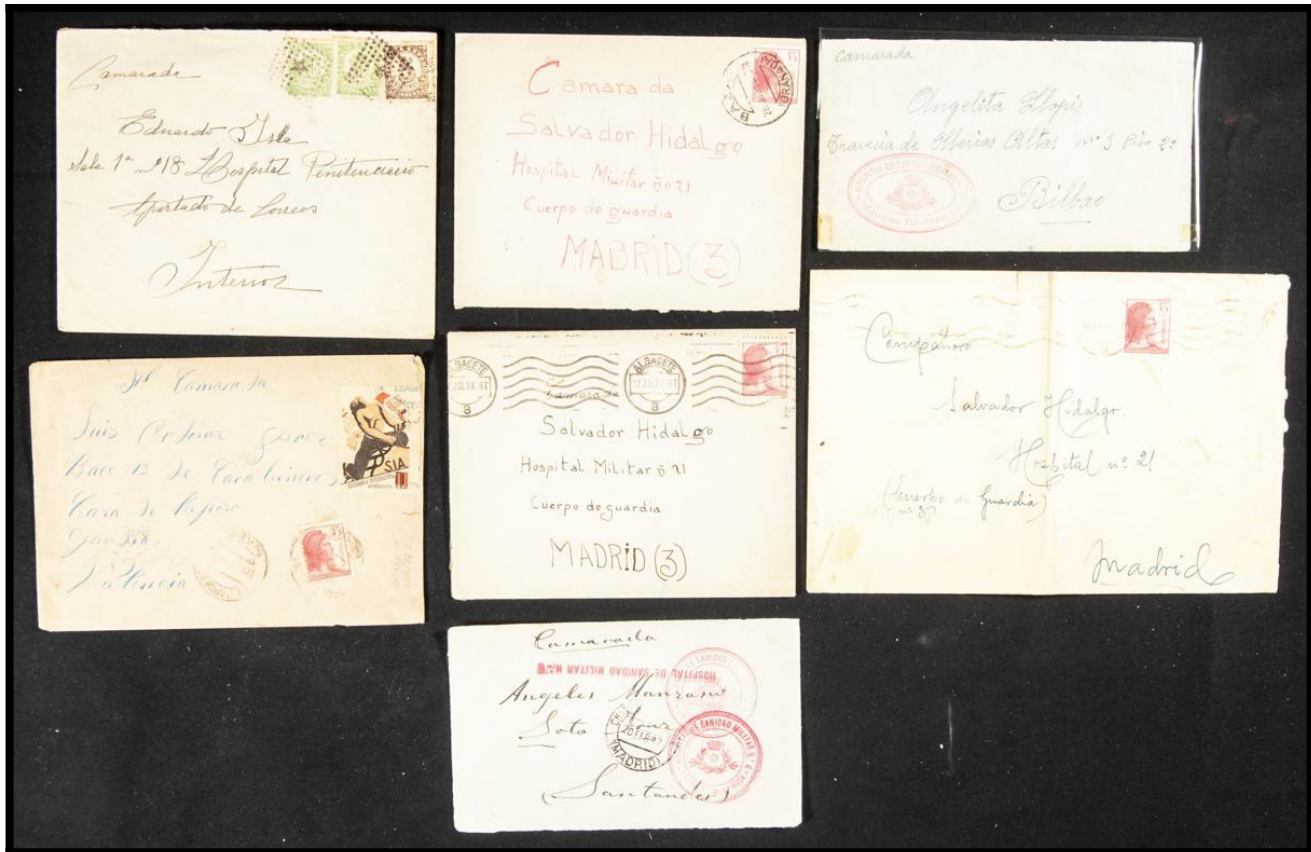 Camarada
Eduardo Isla
Sala 1ª nº 18 Hospital Penitenciario
Apartado de Correos
Interior
Camarada
Salvador Hidalgo
Hospital Militar ño 21
Cuerpo de guardia
MADRID (3)
BAZA
45
Camarada
Angelita Llopis
Travesia de Ollerias Altas nº 3 Piso 2º
Bilbao
HOSPITAL DE SANIDAD MILITAR
Al Camarada
Luis
Bace 12 de Carabineros
Casa de
Gandia
Valencia
SIA
45
ALBACETE
17 JUL 38. 6T
8
ALBACETE
17 JUL 38. 6T
8
45
Camarada
Salvador Hidalgo
Hospital Militar ñº 21
Cuerpo de guardia
MADRID (3)
45
Compañero
Salvador Hidalgo.
Hospital nº 21
(Cuerpo de Guardia)
Madrid
Camarada
HOSPITAL DE SANIDAD MILITAR
Angeles Manzano
Soto
20 FEB 37
(MADRID)
SANIDAD MILITAR N.º 6
(Santander)